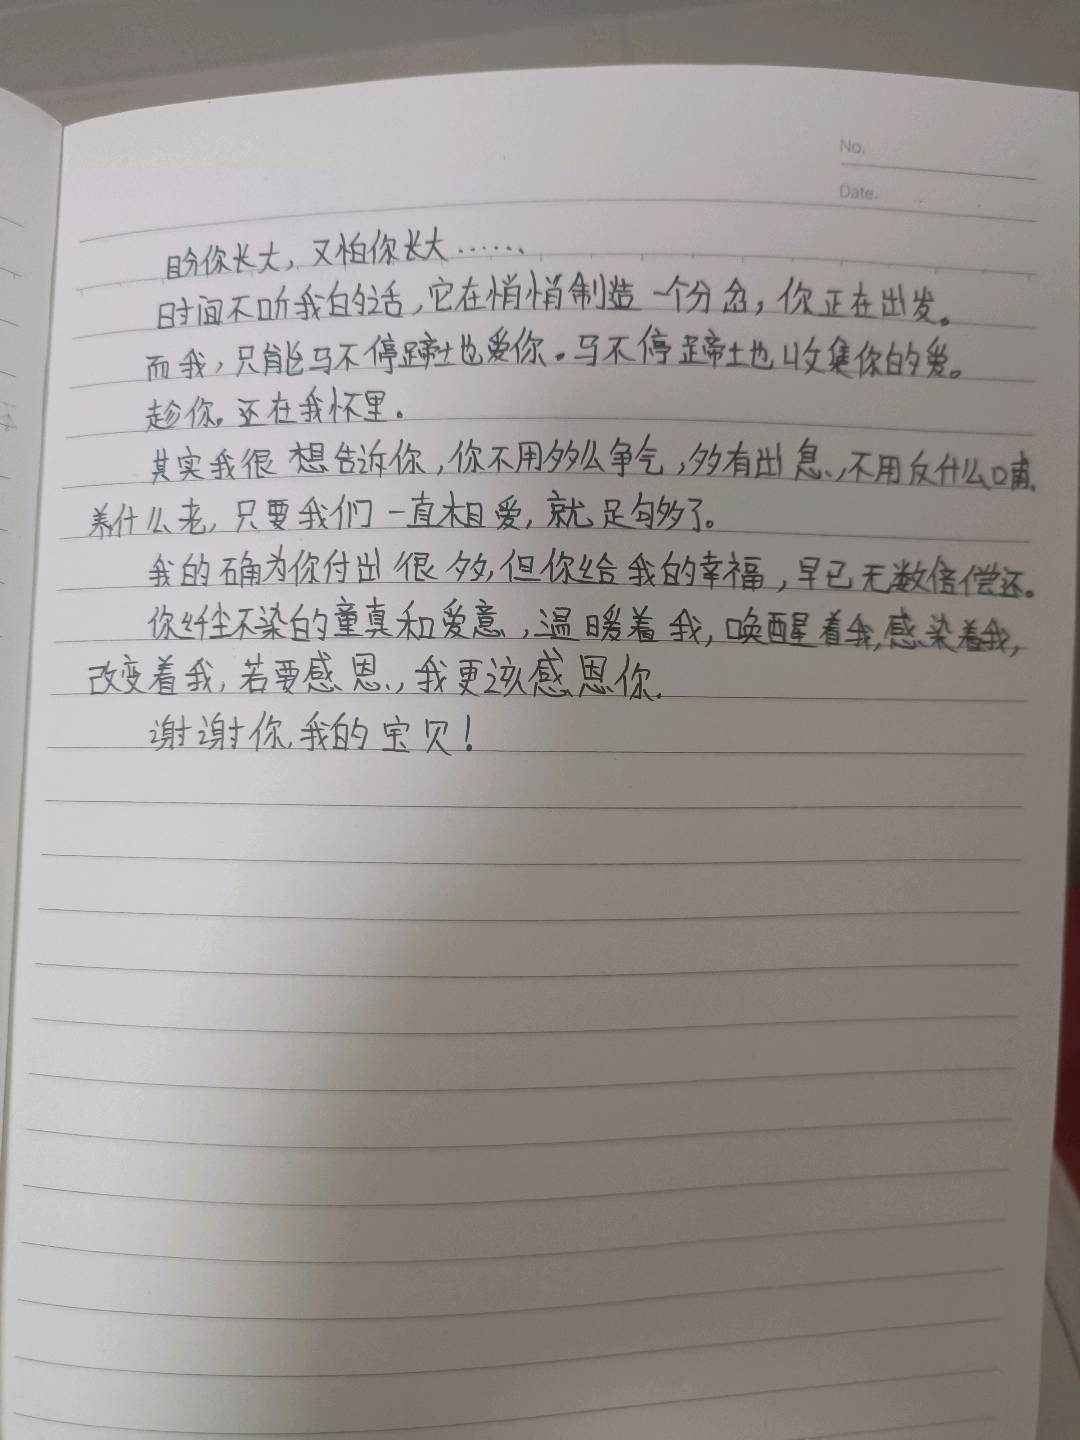 No.
Date.
盼你长大，又怕你长大……
时间不听我的话，它在悄悄制造一个分岔，你正在出发。
而我，只能马不停蹄地爱你。马不停蹄地收集你的爱。
趁你，还在我怀里。
其实我很想告诉你，你不用多么争气，多有出息，不用反什么哺、
养什么老，只要我们一直相爱，就足够了。
我的确为你付出很多，但你给我的幸福，早已无数倍偿还。
你纤尘不染的童真和爱意，温暖着我，唤醒着我，感染着我，
改变着我，若要感恩，我更该感恩你.
谢谢你，我的宝贝！